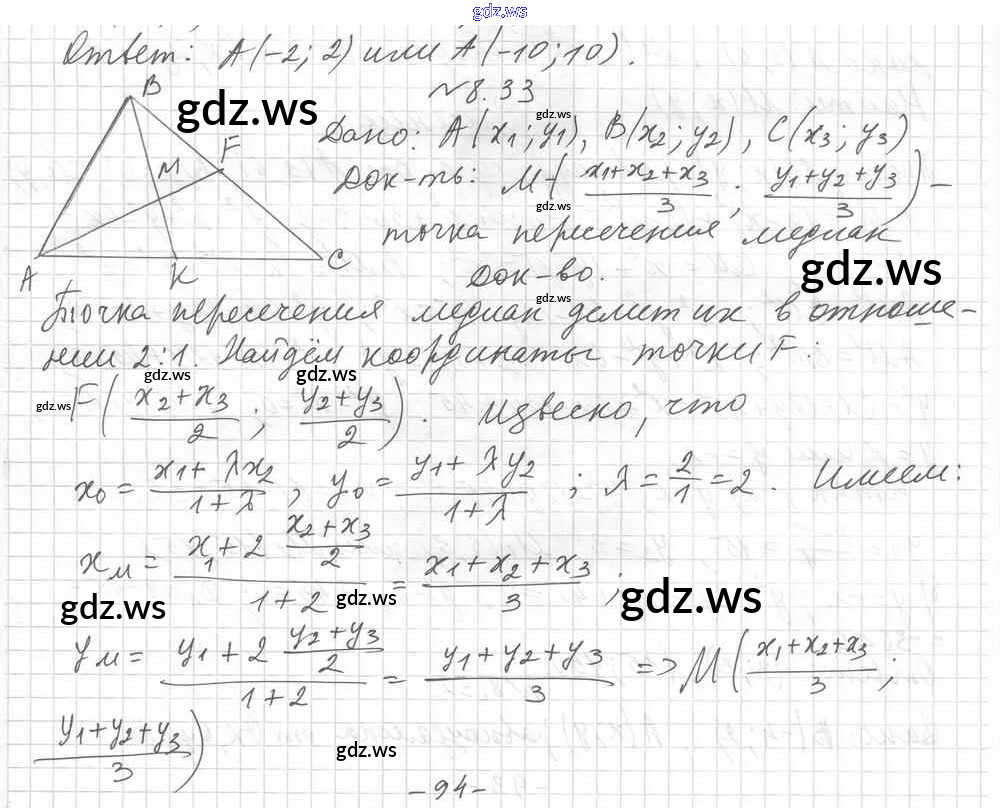 gdz.ws
Ответ: A(-2; 2) или A(-10; 10).
№8.33
gdz.ws
gdz.ws
B
F
M
A
K
C
Дано: A(x₁; y₁), B(x₂; y₂), C(x₃; y₃)
Док-ть: M-((x₁+x₂+x₃)/3; (y₁+y₂+y₃)/3) -
gdz.ws
точка пересечения медиан
док-во.
gdz.ws
gdz.ws
Точка пересечения медиан делит их в отноше-
нии 2:1. Найдём координаты точки F:
gdz.ws
gdz.ws
gdz.ws
F((x₂+x₃)/2; (y₂+y₃)/2). Извеско, что
x₀ = (x₁+λx₂)/(1+λ), y₀ = (y₁+λy₂)/(1+λ); λ = 2/1 = 2. Имеем:
x_M = (x₁+2 (x₂+x₃)/2)/(1+2) = (x₁+x₂+x₃)/3;
gdz.ws
gdz.ws
gdz.ws
y_M = (y₁+2 (y₂+y₃)/2)/(1+2) = (y₁+y₂+y₃)/3 => M((x₁+x₂+x₃)/3;
(y₁+y₂+y₃)/3)
gdz.ws
-94-